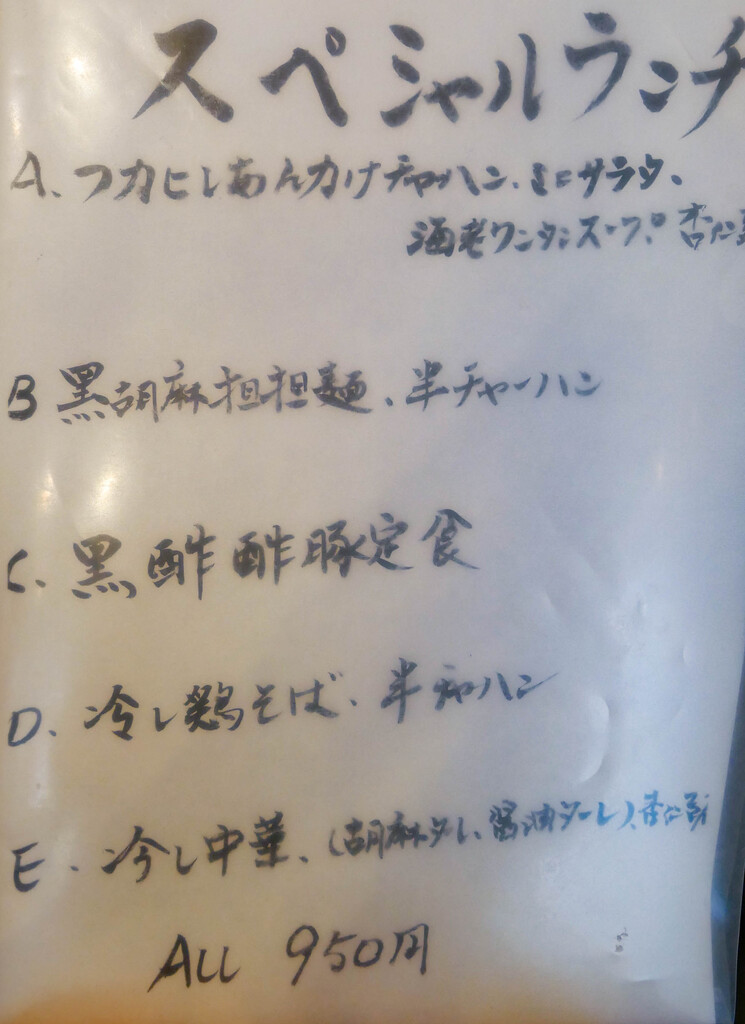 スペシャルランチ
A、フカヒレあんかけチャーハン、ミニサラダ、
海老ワンタンスープ。杏仁
B 黒胡麻担担麺、半チャーハン
C、黒酢酢豚定食
D、冷し鶏そば、半チャーハン
E、冷し中華、(胡麻ダレ、醤油ダーレ)、杏仁
ALL 950円